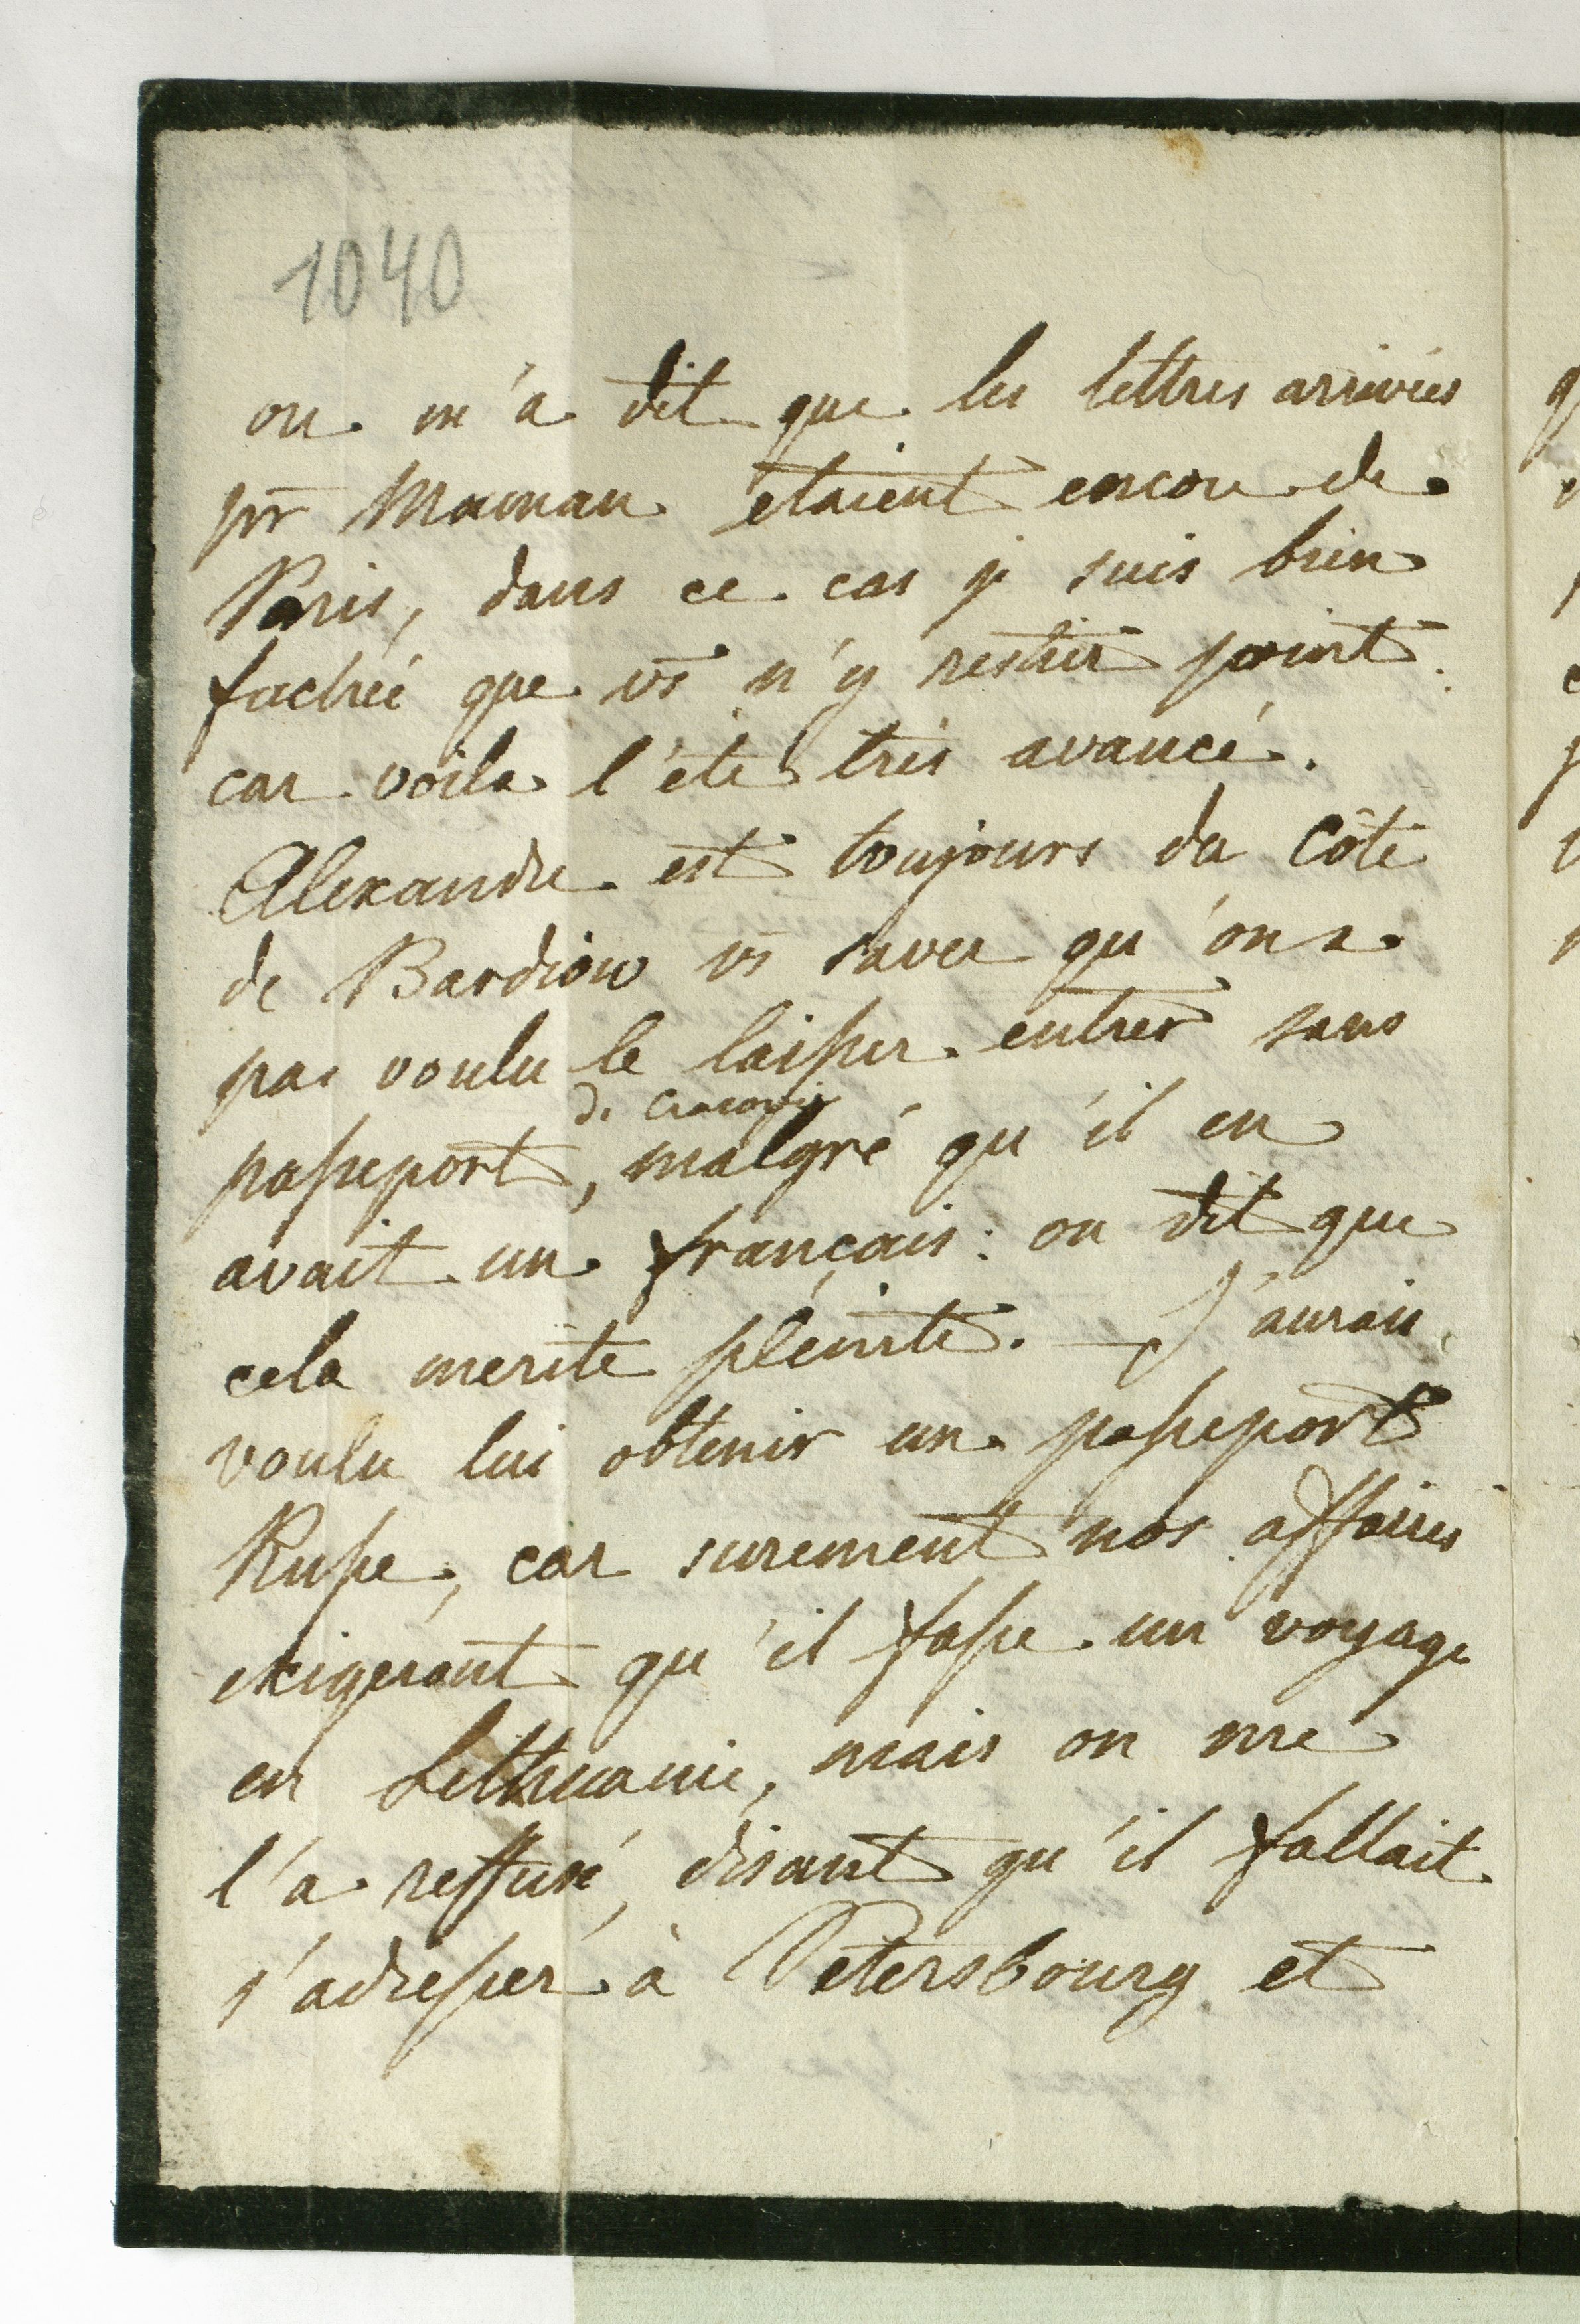 1040
on m'a dit que les lettres arrivées
pr Maman etaient encore de
Paris, dans ce cas je suis bien
fachée que vs n'y restiez point
car voila l'éte très avancé.
Alexandre est toujours du Côté
de Bardiow vs savez qu'on a
pas voulu le laisser entrer sans
de Cracovie
passeport, malgré qu'il en
avait un français: on dit que
cela merite pleinte. — J'aurais
voulu lui obtenir un passeport
Russe, car surement nos affaires
exigeront qu'il fasse un voyage
en Lithuanie, mais on me
l'a reffusé, disant qu'il fallait
s'adresser à Petersbourg et